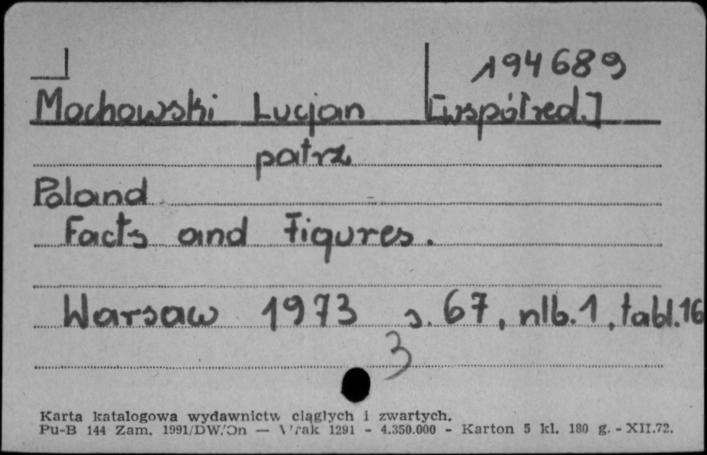 194689
Mochowski Lucjan [współred.]
patrz
Poland
Facts and Figures.
Warsaw 1973 s. 67, nlb. 1, tabl. 16
3
Karta katalogowa wydawnictw ciągłych i zwartych.
Pu-B 144 Zam. 1991/DW. — 1291 - 4.350.000 - Karton 5 kl. 180 g. - XII.72.